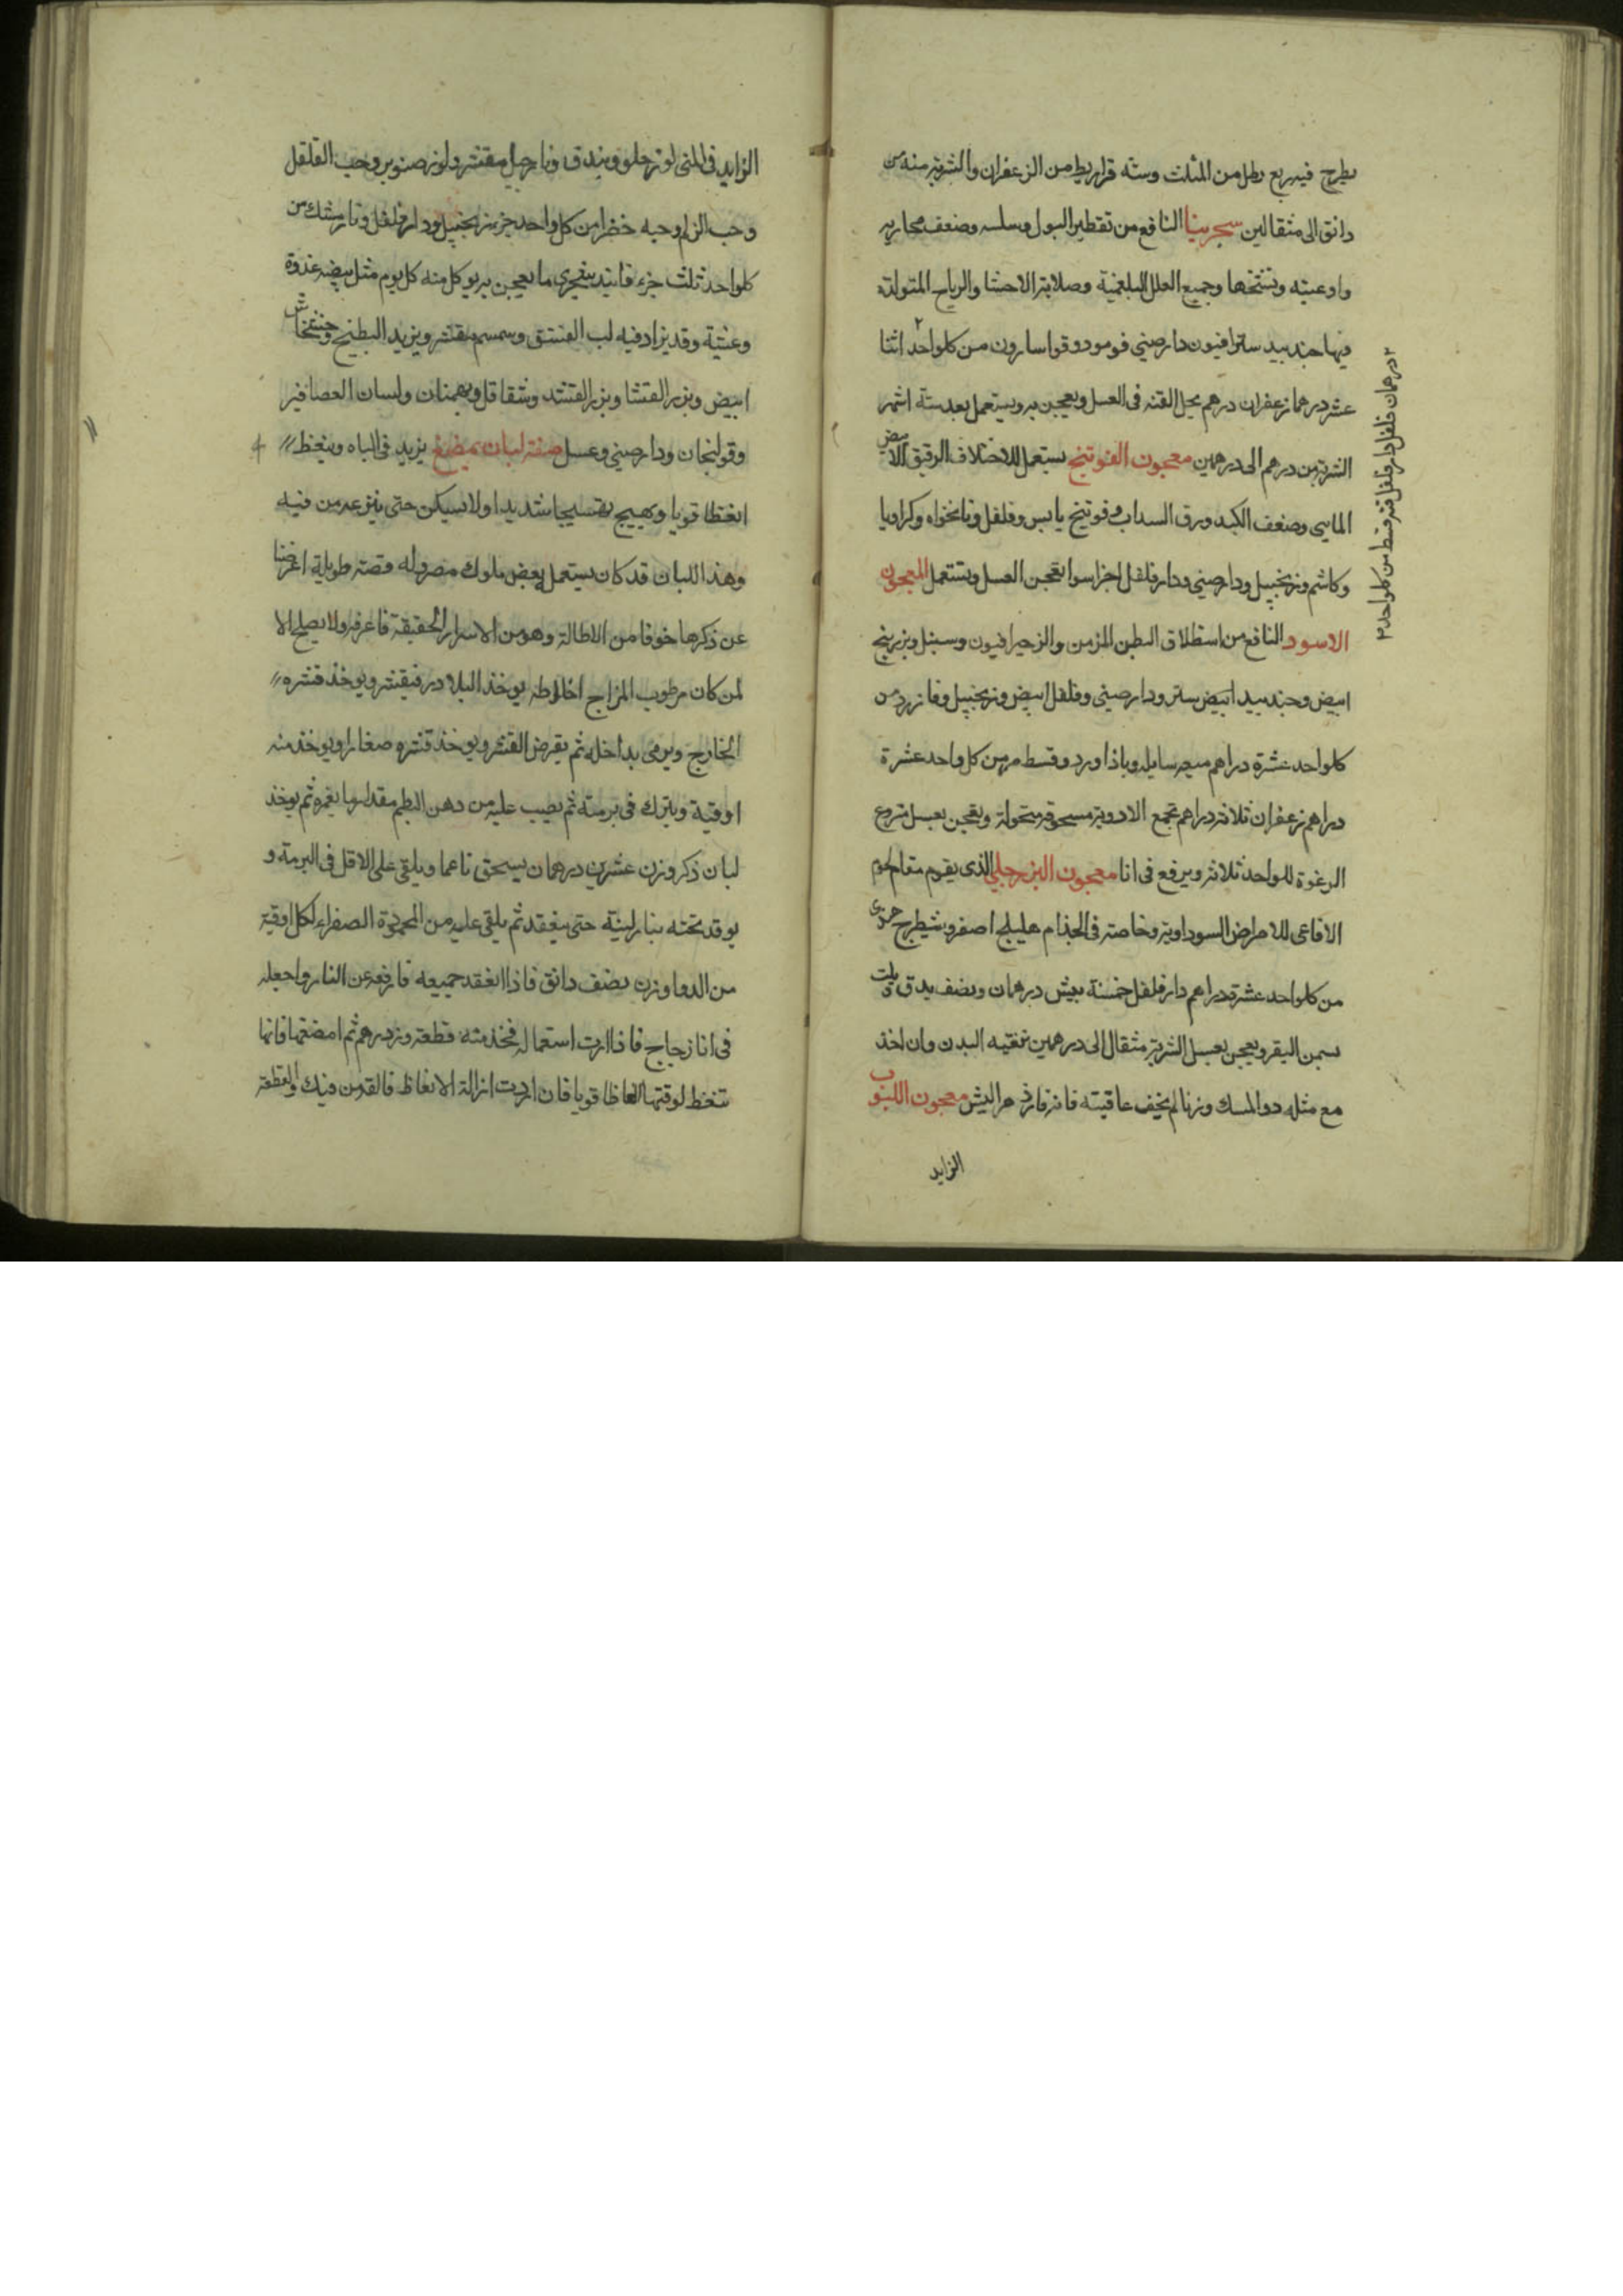 يطرح فيه ربع رطل من المثلث وستة قراريط من الزعفران والشربة منه من
دانق الى مثقالين سجرينا النافع من تقطير البول وسلسه وضعف مجاريه
واوعيته وتشنجها وجميع العلل البلغمية وصلابة الاحشا والرياح المتولدة
فيها جندبيدستر افيون دارصيني فو مو دوقو اسارون من كلواحد اثنا
عشر درهما زعفران درهم يحل القنه فى العسل ويعجن به ويستعمل بعد ستة اشهر
الشربة من درهم الى درهمين معجون الفوتنج يستعمل للاختلاف الرقيق الابيض
المايى وضعف الكبد ورق السداب وفوتنج يابس وفلفل ونانخواه وكراويا
وكاشم وزنجبيل ودارصيني ودارفلفل اجزا سوا يعجن العسل وتستعمل المعجون
الاسود النافع من استطلاق البطن المزمن والزحير افيون وسنبل وبزر بنج
ابيض وجندبيد ابيض ستر ودارصيني وفلفل ابيض وزنجبيل وفازرد من
كلواحد عشرة دراهم ميعه سايله وباذاورد وقسط مر من كل واحد عشرة
دراهم زعفران ثلاثة دراهم تجمع الادوية مسحوقة منخولة وتعجن بعسل منزوع
الرغوة للواحد ثلاثة ويرفع فى انا معجون البزرجلي الذى يقوم مقام لحوم
الافاعى للامراض السوداوية وخاصة فى الجذام هليلج اصفر وشيطرج هندى
من كلواحد عشرة دراهم دارفلفل خمسة بيش درهمان ونصف يدق ويلت
بسمن البقر ويعجن بعسل الشربة مثقال الى درهمين بتنقيه البدن وان اخذ
مع مثله دوا المسك وزنا لم يخف عاقبته فانه فازهر البش معجون اللبوب
الزايد
٢ درهمان فلفل دارفلفل قنه قسط من كلواحد ٢
الزايد فى المنى لوز حلو وبندق ونارجيل مقشر ولوز صنوبر وحب القلقل
وحب الزلم وحبه خضرا من كل واحد جزء زنجبيل ودارفلفل ونارمشك من
كلواحد ثلث جزء فانيد سجزى ما يعجن به يوكل منه كل يوم مثل بيضه غدوة
وعشية وقد يزاد فيه لب الفستق وسمسم مقشر وبزر البطيخ وخشخاش
ابيض وبزر القثا وبزر القثد وشقاقل وبهمنان ولسان العصافير
وقولنجان ودارصيني وعسل صفة لبان يمضغ يزيد فى الباه وينعظ
انعظا قويا ويهيج تهييجا شديدا ولا يسكن حتى ينزعه من فيه
وهذا اللبان قد كان يستعمل بعض ملوك مصر وله قصة طويلة اعرضنا
عن ذكرها خوفا من الاطالة وهو من الاسرار الحقيقة فاعرفه ولا يصلح الا
لمن كان مرطوب المزاج اخلاطه يوخذ البلادر فيقشر ويوخذ قشره
الخارج ويرمى بداخله ثم يقرض القشر ويوخذ قشره صغارا ويوخذ منه
اوقية ويترك فى برمته ثم يصب عليه من دهن البطم مقدار ما يغمره ثم يوخذ
لبان ذكر وزن عشرين درهمان يسحق ناعما ويلقى على الاقل فى البرمة و
يوقد تحته بنار لينة حتى ينعقد ثم يلقى عليه من المحمودة الصفراء لكل اوقية
من الدوا وزن نصف دانق فاذا انعقد جميعه فارفعه عن النار واجعله
فى انا زجاج فاذا اردت استعماله فخذ منه قطعة وزن درهم ثم امضغها فانها
تنغظ لوقتها انعاظا قويا فان اردت ازالة الانعاظ فالقه من فيك والقطعة